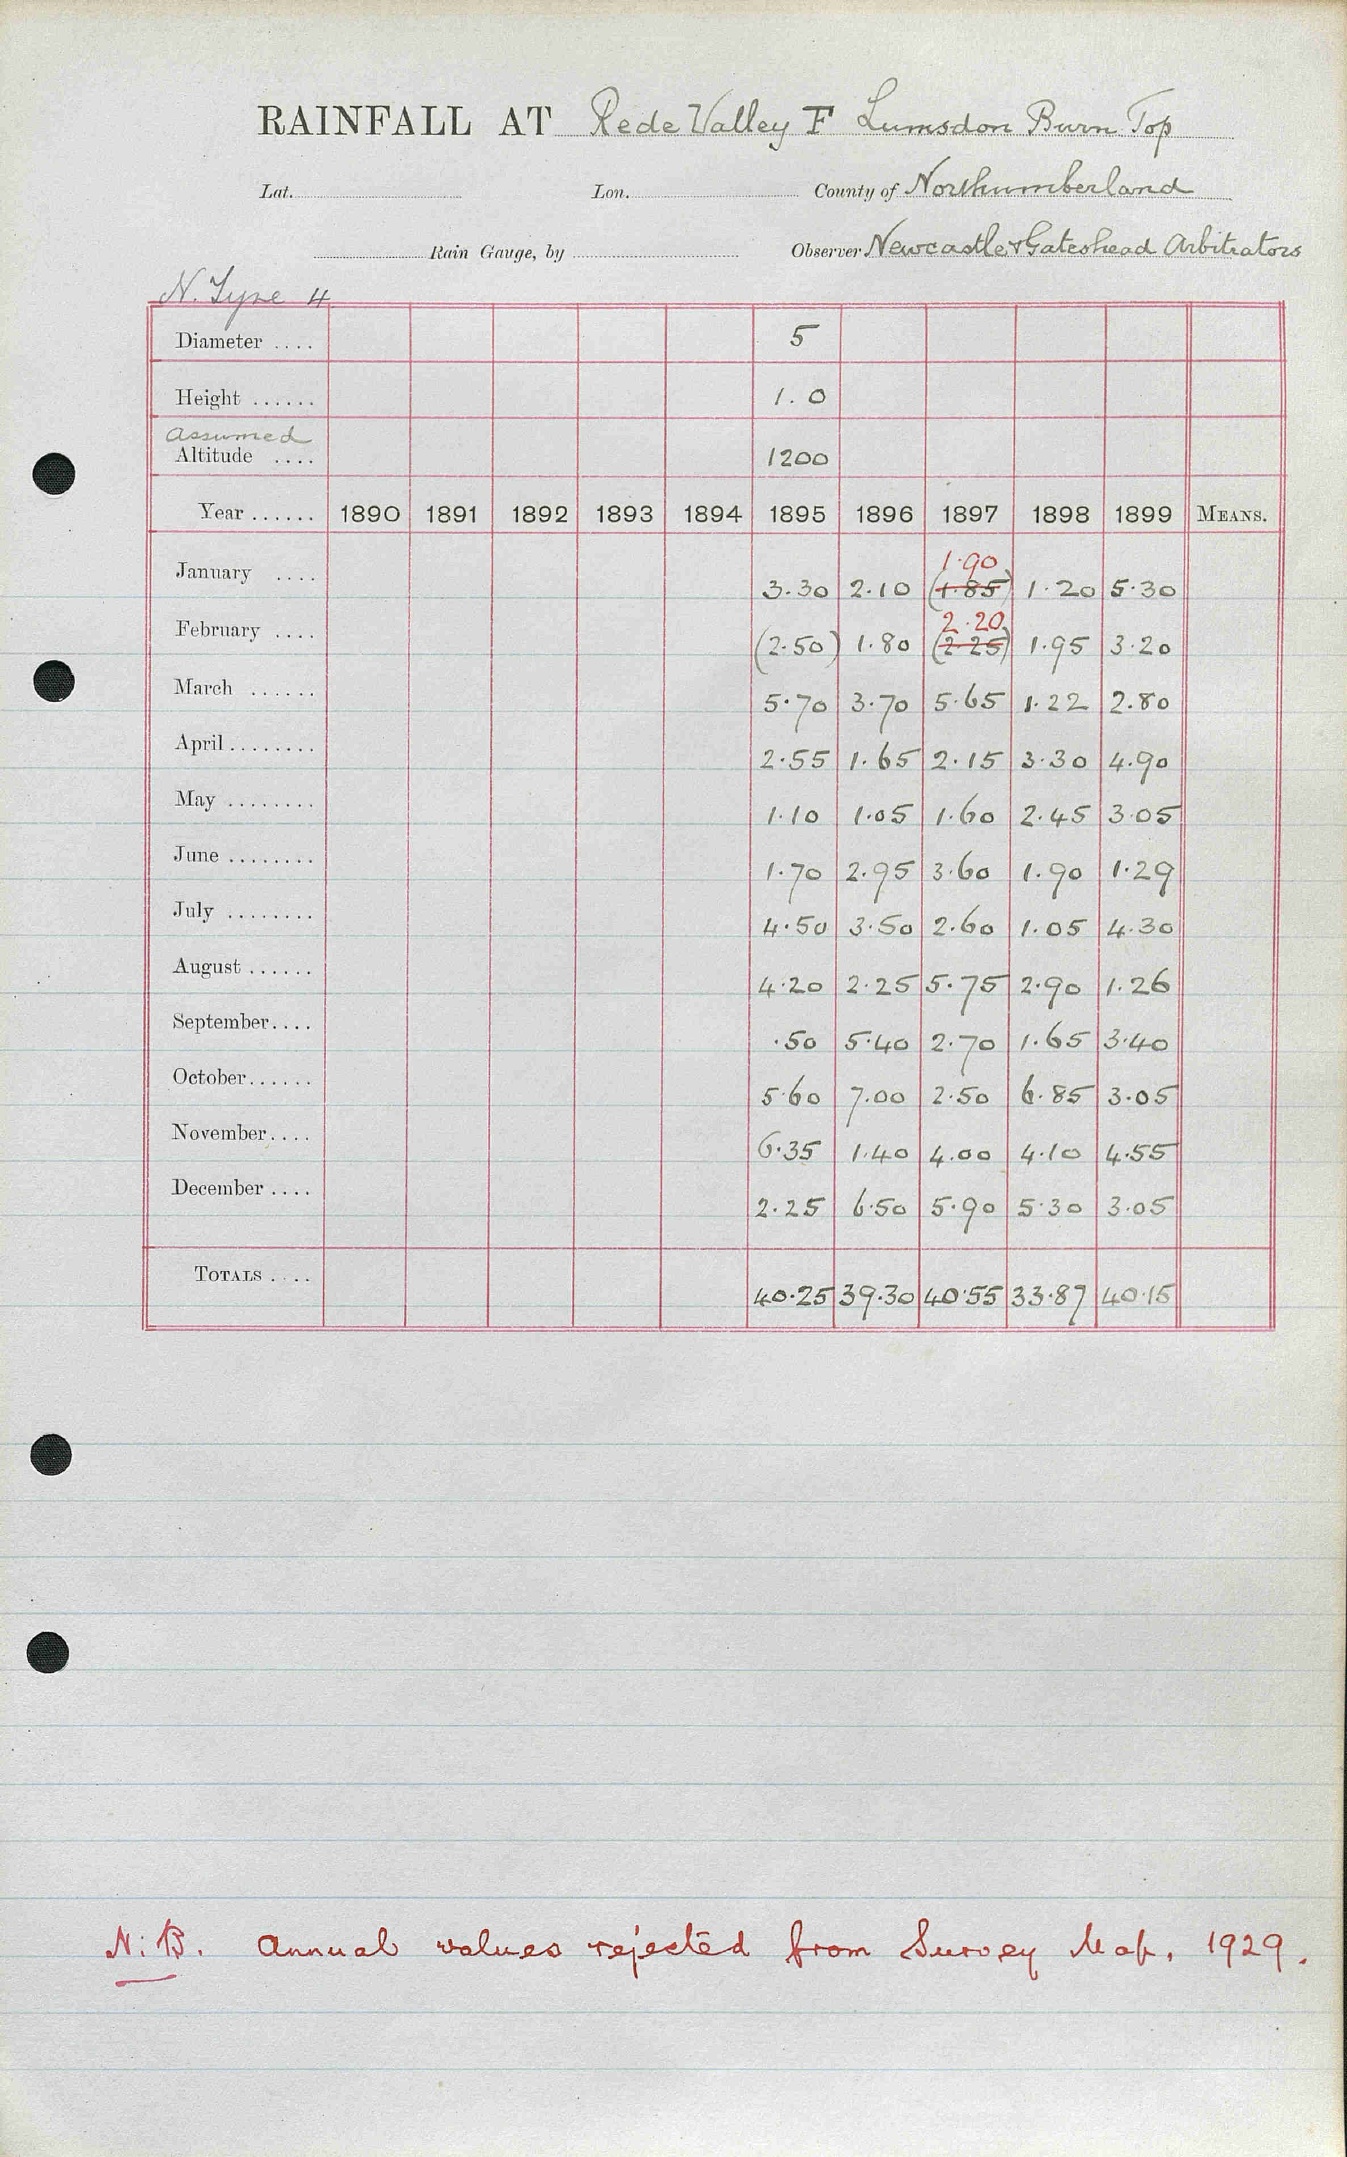 RAINFALL AT Rede Valley F Lumsdon Burn Top
Lat. Lon. County of Northumberland
Rain Gauge, by Observer Newcastle & Gateshead Arbitrators
N. Tyne 4
Diameter .... 5
Height ...... 1.0
assumed
Altitude .... 1200
Year ...... 1890 1891 1892 1893 1894 1895 1896 1897 1898 1899 MEANS.
1.90
January .... 3.30 2.10 (1.85) 1.20 5.30
2.20
February .... (2.50) 1.80 (2.25) 1.95 3.20
March ...... 5.70 3.70 5.65 1.22 2.80
April ........ 2.55 1.65 2.15 3.30 4.90
May ........ 1.10 1.05 1.60 2.45 3.05
June ........ 1.70 2.95 3.60 1.90 1.29
July ........ 4.50 3.50 2.60 1.05 4.30
August ...... 4.20 2.25 5.75 2.90 1.26
September.... .50 5.40 2.70 1.65 3.40
October...... 5.60 7.00 2.50 6.85 3.05
November.... 6.35 1.40 4.00 4.10 4.55
December .... 2.25 6.50 5.90 5.30 3.05
TOTALS .... 40.25 39.30 40.55 33.87 40.15
N.B. Annual values rejected from Survey Map, 1929.